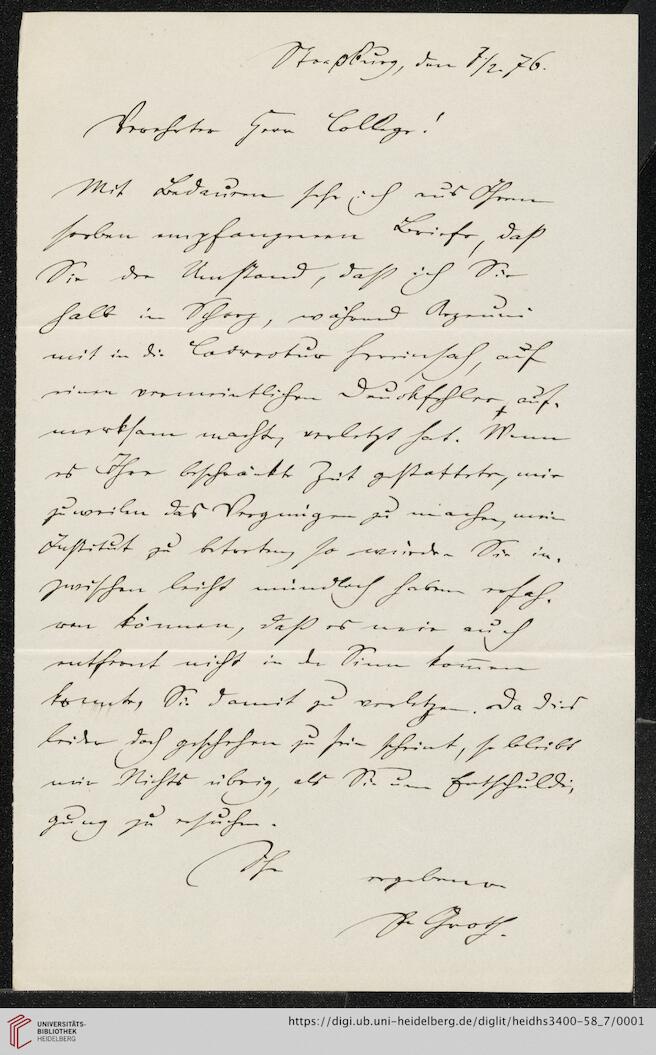 Straßburg, den 7/2. 76.
Verehrter Herr College!
Mit Bedauern sehe ich aus Ihrem
soeben empfangenen Briefe, daß
Sie der Umstand, daß ich Sie
halb im Scherz, während Arzruni
mit in die Correctur hereinsah, auf
einen vermeintlichen Druckfehler auf-
merksam machte, verletzt hat. Wenn
es Ihre beschränkte Zeit gestattete, mir
zuweilen das Vergnügen zu machen, mein
Institut zu betreten, so würden Sie in-
zwischen leicht mündlich haben erfah-
ren können, daß es mir auch
entfernt nicht in den Sinn kommen
konnte, Sie damit zu verletzen. Da dies
leider doch geschehen zu sein scheint, so bleibt
mir Nichts übrig, als Sie um Entschuldi-
gung zu ersuchen.
Ihr ergebener
P. Groth.
UNIVERSITÄTS-
BIBLIOTHEK
HEIDELBERG
https://digi.ub.uni-heidelberg.de/diglit/heidhs3400-58_7/0001